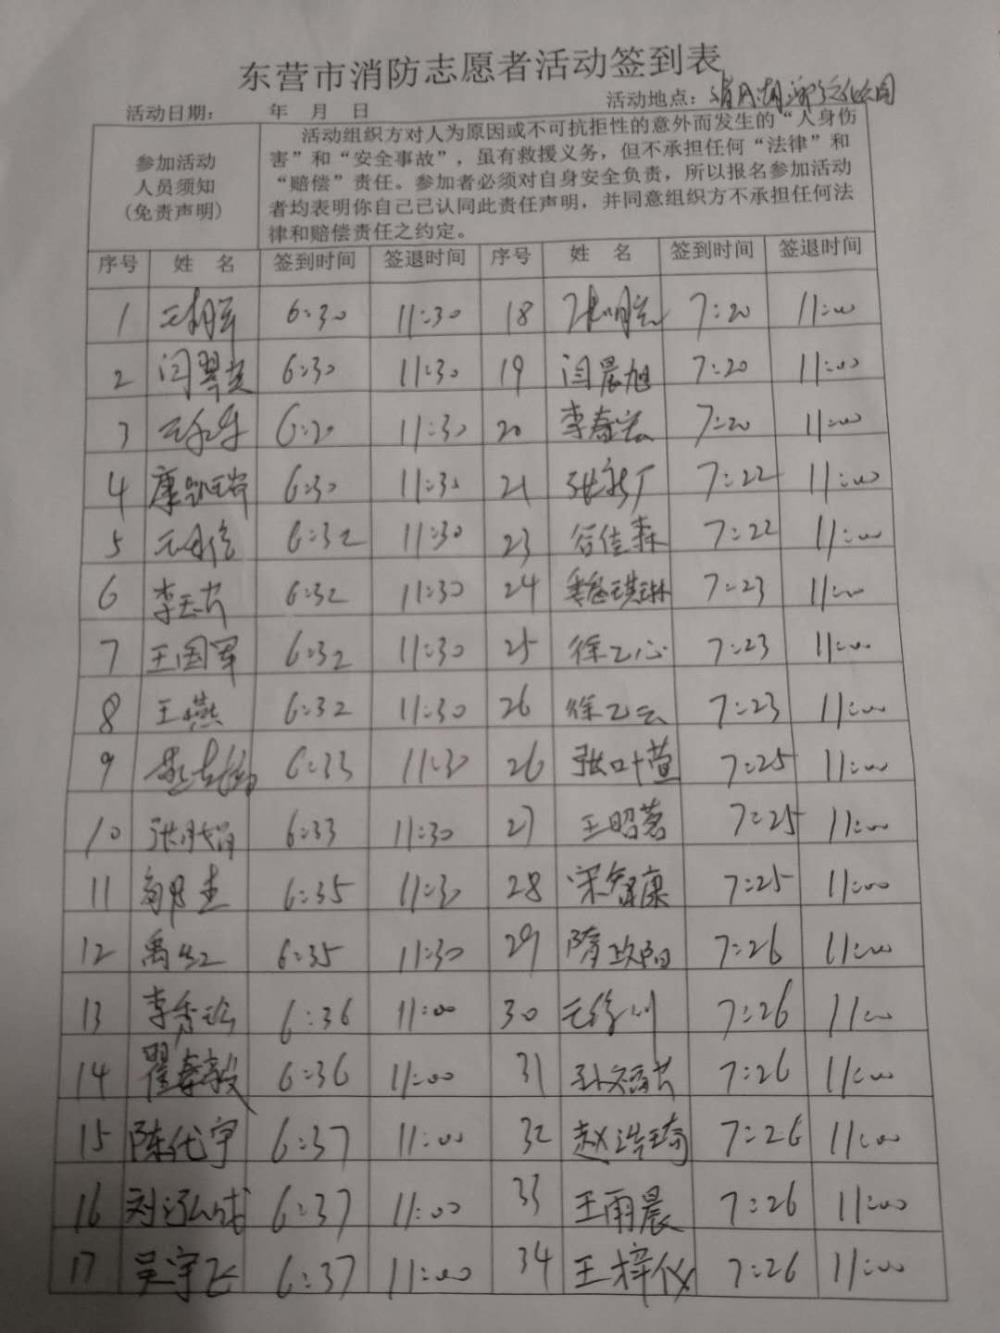 东营市消防志愿者活动签到表
活动日期： 年 月 日 活动地点：
参加活动
人员须知
(免责声明)
活动组织方对人为原因或不可抗拒性的意外而发生的“人身伤
害”和“安全事故”，虽有救援义务，但不承担任何“法律”和
“赔偿”责任。参加者必须对自身安全负责，所以报名参加活动
者均表明你自己己认同此责任声明，并同意组织方不承担任何法
律和赔偿责任之约定。
序号 姓 名 签到时间 签退时间 序号 姓 名 签到时间 签退时间
1 6:30 11:30 18 7:20 11:00
2 闫翠英 6:30 11:30 19 闫晨旭 7:20 11:00
3 11:30 20 李春宏 7:20 11:00
4 康凯瑞 6:30 11:30 21 张新厂 7:22 11:00
5 6:32 11:30 23 谷佳森 7:22 11:00
6 李玉芳 6:32 11:30 24 魏琪琳 7:23 11:00
7 王国军 6:32 11:30 25 徐乙心 7:23 11:00
8 王燕 6:32 11:30 26 徐乙云 7:23 11:00
9 6:33 11:30 26 张叶萱 7:25 11:00
10 张月娟 6:33 11:30 27 王昭茗 7:25 11:00
11 6:35 11:30 28 宋智康 7:25 11:00
12 禹红 6:35 11:30 29 隋政阳 7:26 11:00
13 李秀玲 6:36 11:00 30 7:26 11:00
14 翟春毅 6:36 11:00 31 7:26 11:00
15 陈代宇 6:37 11:00 32 赵浩琦 7:26 11:00
16 刘泓成 6:37 11:00 33 王雨晨 7:26 11:00
17 吴宇飞 6:37 11:00 34 王梓仪 7:26 11:00